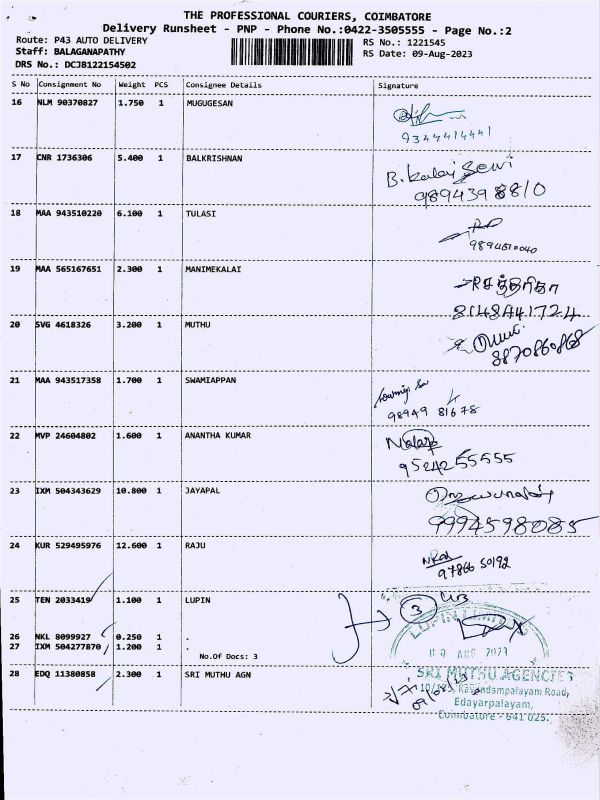 THE PROFESSIONAL COURIERS, COIMBATORE
Delivery Runsheet - PNP - Phone No.:0422-3505555 - Page No.:2
Route: P43 AUTO DELIVERY
RS No.: 1221545
Staff: BALAGANAPATHY
RS Date: 09-Aug-2023
DRS No.: DCJB122154502
S No Consignment No Weight PCS Consignee Details Signature
16 NLM 90370827 1.750 1 MUGUGESAN
9344414441
17 CNR 1736306 5.400 1 BALKRISHNAN
B. Kalai Selvi
9894398810
18 MAA 943510220 6.100 1 TULASI
9894610040
19 MAA 565167651 2.300 1 MANIMEKALAI
8148441724
20 SVG 4618326 3.200 1 MUTHU
8870860868
21 MAA 943517358 1.700 1 SWAMIAPPAN
98949 81678
22 MVP 24604802 1.600 1 ANANTHA KUMAR
9524255555
23 IXM 504343629 10.800 1 JAYAPAL
9994598085
24 KUR 529495976 12.600 1 RAJU
97866 50192
25 TEN 2033419 1.100 1 LUPIN
3
LUPIN LIMITED
26 NKL 8099927 0.250 1 .
27 IXM 504277870 1.200 1 .
No.Of Docs: 3
09 AUG 2023
28 EDQ 11380858 2.300 1 SRI MUTHU AGN
SRI MUTHU AGENCIES
Kavundampalayam Road,
Edayarpalayam,
Coimbatore - 641 025.
09/08/23